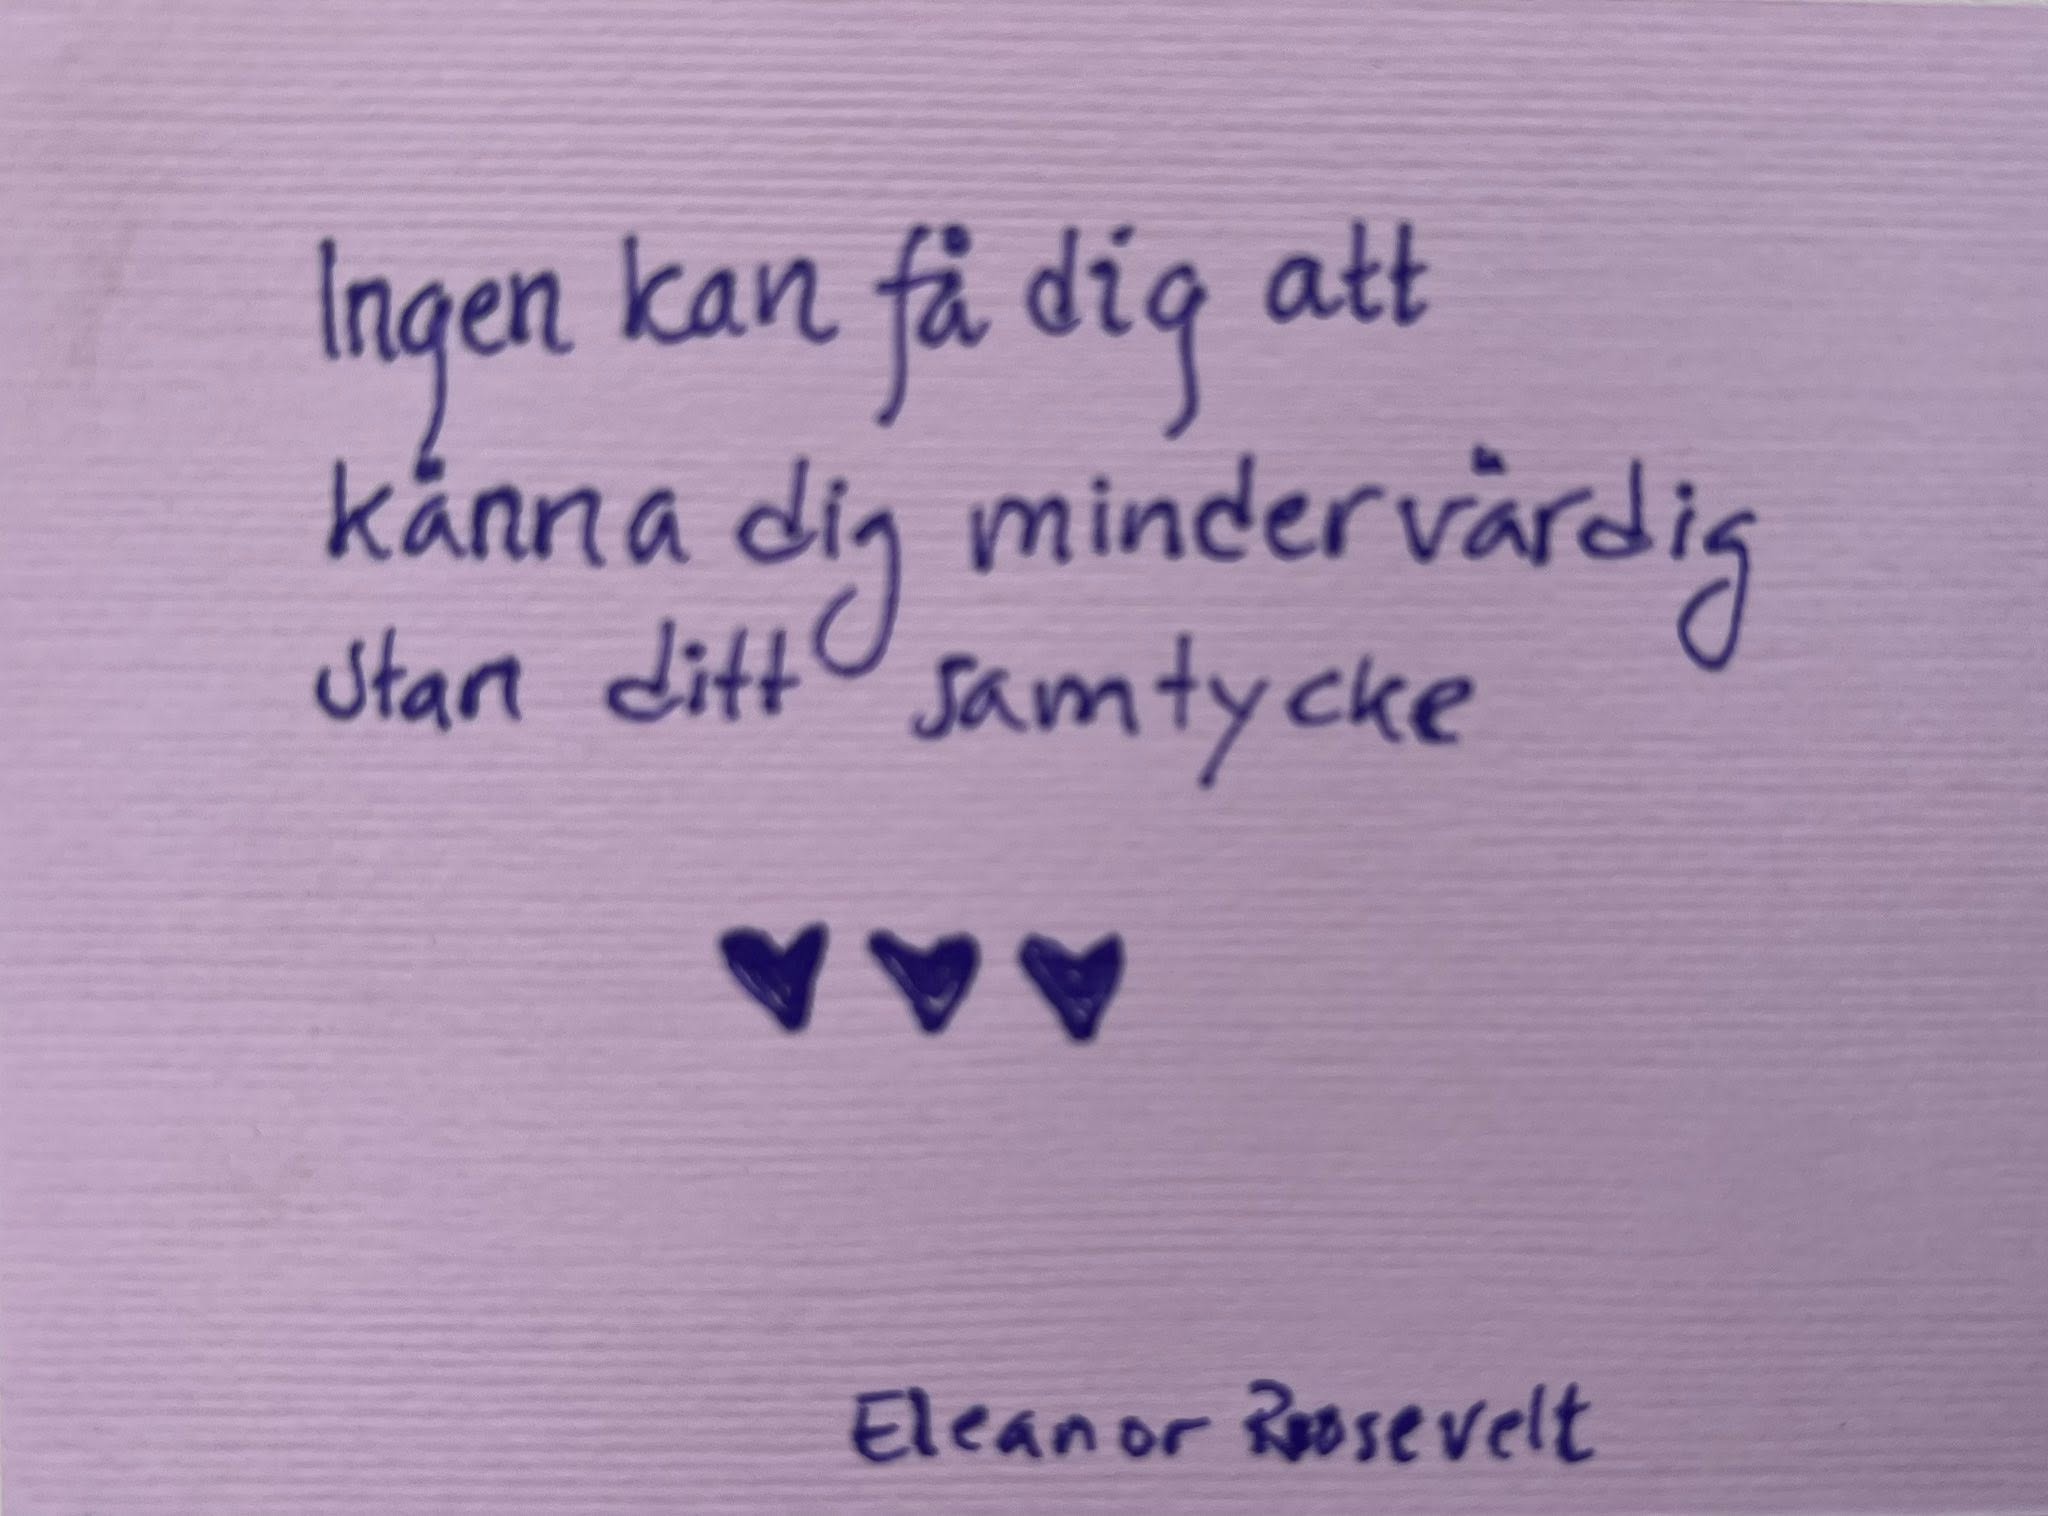 Ingen kan få dig att
känna dig mindervärdig
utan ditt samtycke
♥ ♥ ♥
Eleanor Roosevelt